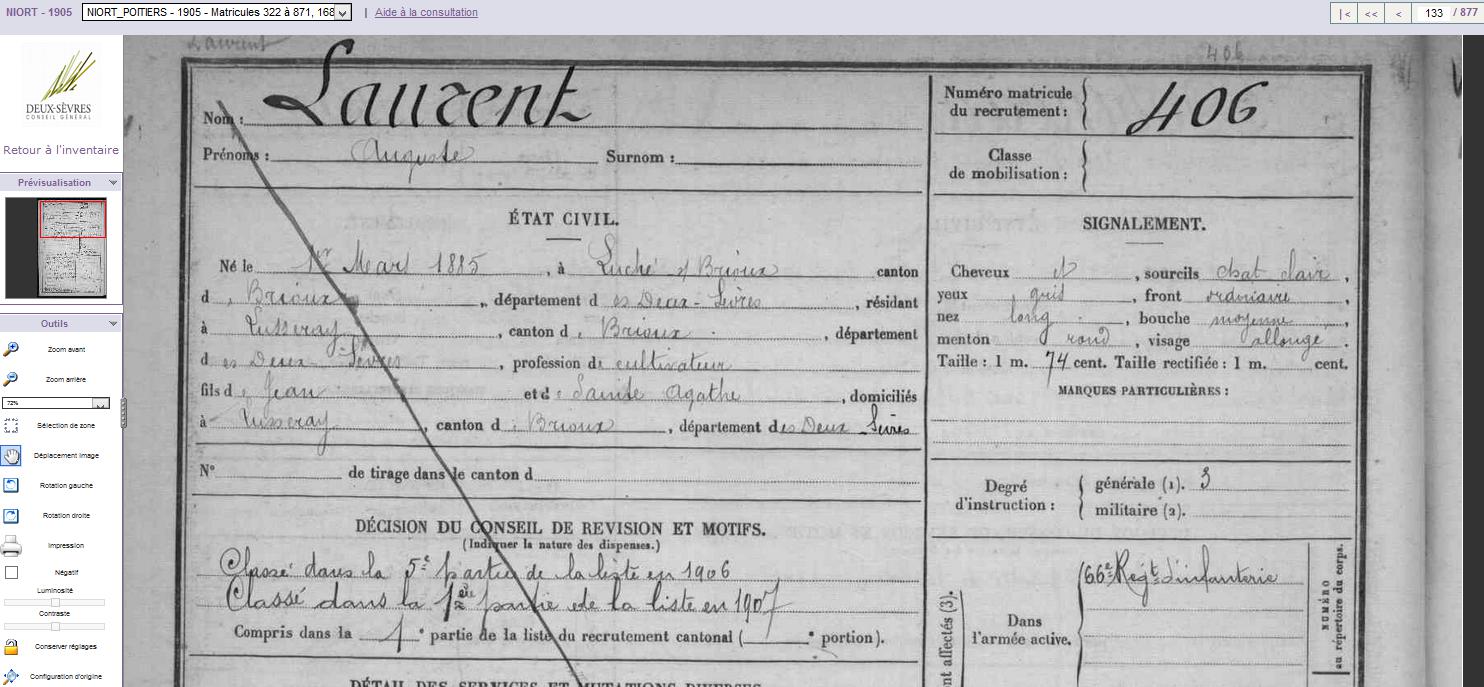 NIORT - 1905
NIORT_POITIERS - 1905 - Matricules 322 à 871, 168
| Aide à la consultation
|< << < 133 / 877
DEUX-SÈVRES
CONSEIL GÉNÉRAL
Retour à l'inventaire
Prévisualisation
Outils
Zoom avant
Zoom arrière
72%
Sélection de zone
Déplacement image
Rotation gauche
Rotation droite
Impression
Négatif
Luminosité
Contraste
Conserver réglages
Configuration d'origine
Laurent
406
Nom : Laurent
Prénoms : Auguste Surnom :
ÉTAT CIVIL.
Né le 1er Mars 1885, à Luché s/ Brioux canton
d Brioux, département d es Deux-Sèvres, résidant
à Lusseray, canton d Brioux, département
d es Deux Sèvres, profession de cultivateur
fils d Jean et d Sainte Agathe, domiciliés
à Lusseray, canton d Brioux, département des Deux Sèvres
N° de tirage dans le canton d
DÉCISION DU CONSEIL DE REVISION ET MOTIFS.
(Indiquer la nature des dispenses.)
Classé dans la 5e partie de la liste en 1906
Classé dans la 1ère partie de la liste en 1907
Compris dans la 1e partie de la liste du recrutement cantonal ( e portion).
DÉTAIL DES SERVICES ET MUTATIONS DIVERSES
Numéro matricule
du recrutement : 406
Classe
de mobilisation :
SIGNALEMENT.
Cheveux et, sourcils chat clair,
yeux gris, front ordinaire,
nez long, bouche moyenne,
menton rond, visage allongé.
Taille : 1 m. 74 cent. Taille rectifiée : 1 m. cent.
MARQUES PARTICULIÈRES :
Degré
d'instruction :
générale (1). 3
militaire (2).
66e Régt d'infanterie
Dans
l'armée active.
nt affectés (3).
NUMÉRO
au répertoire du corps.